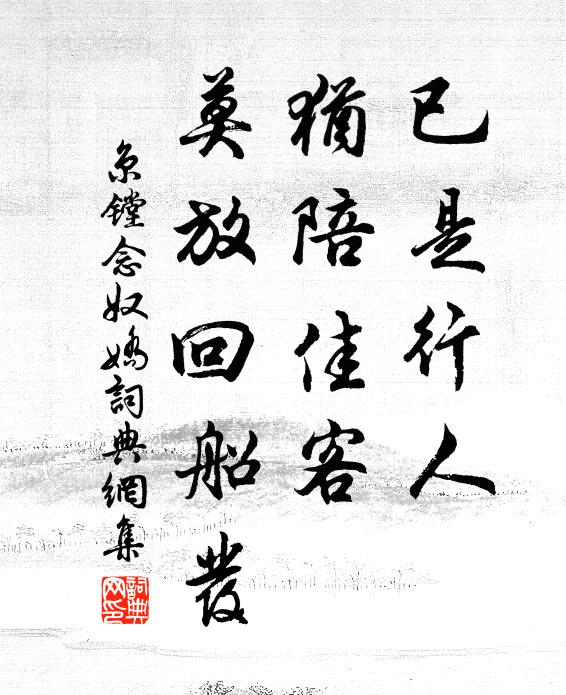 已是行人
猶陪佳客
莫放回船發
京鏜念奴嬌詞典網集
詞典網印